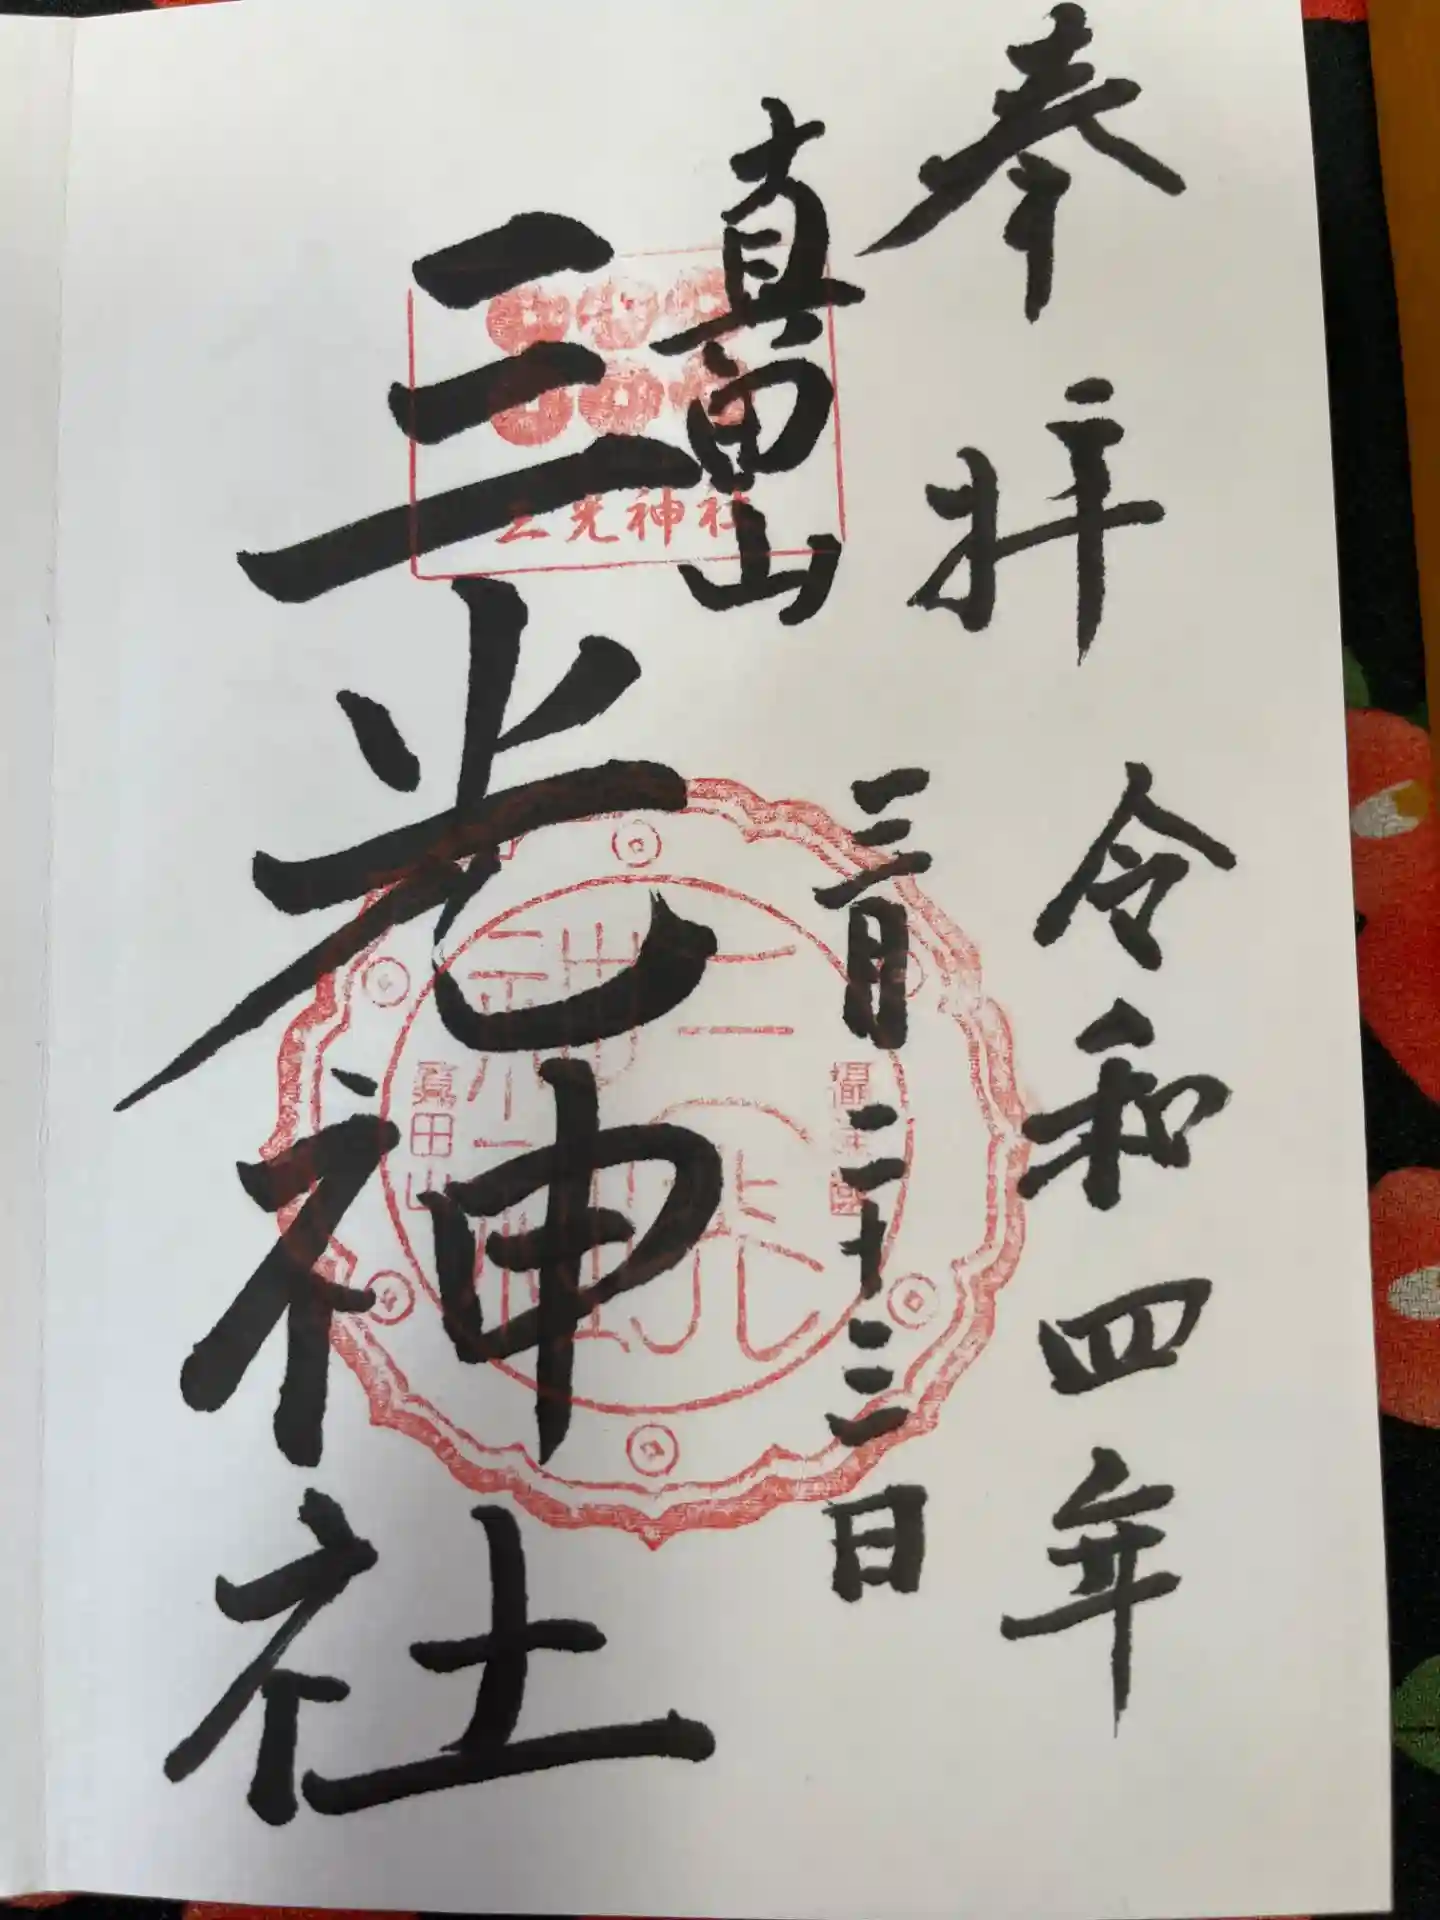 奉拝
令和四年
三月二十三日
真田山
三光神社
三光神社
三光
神社
真田山